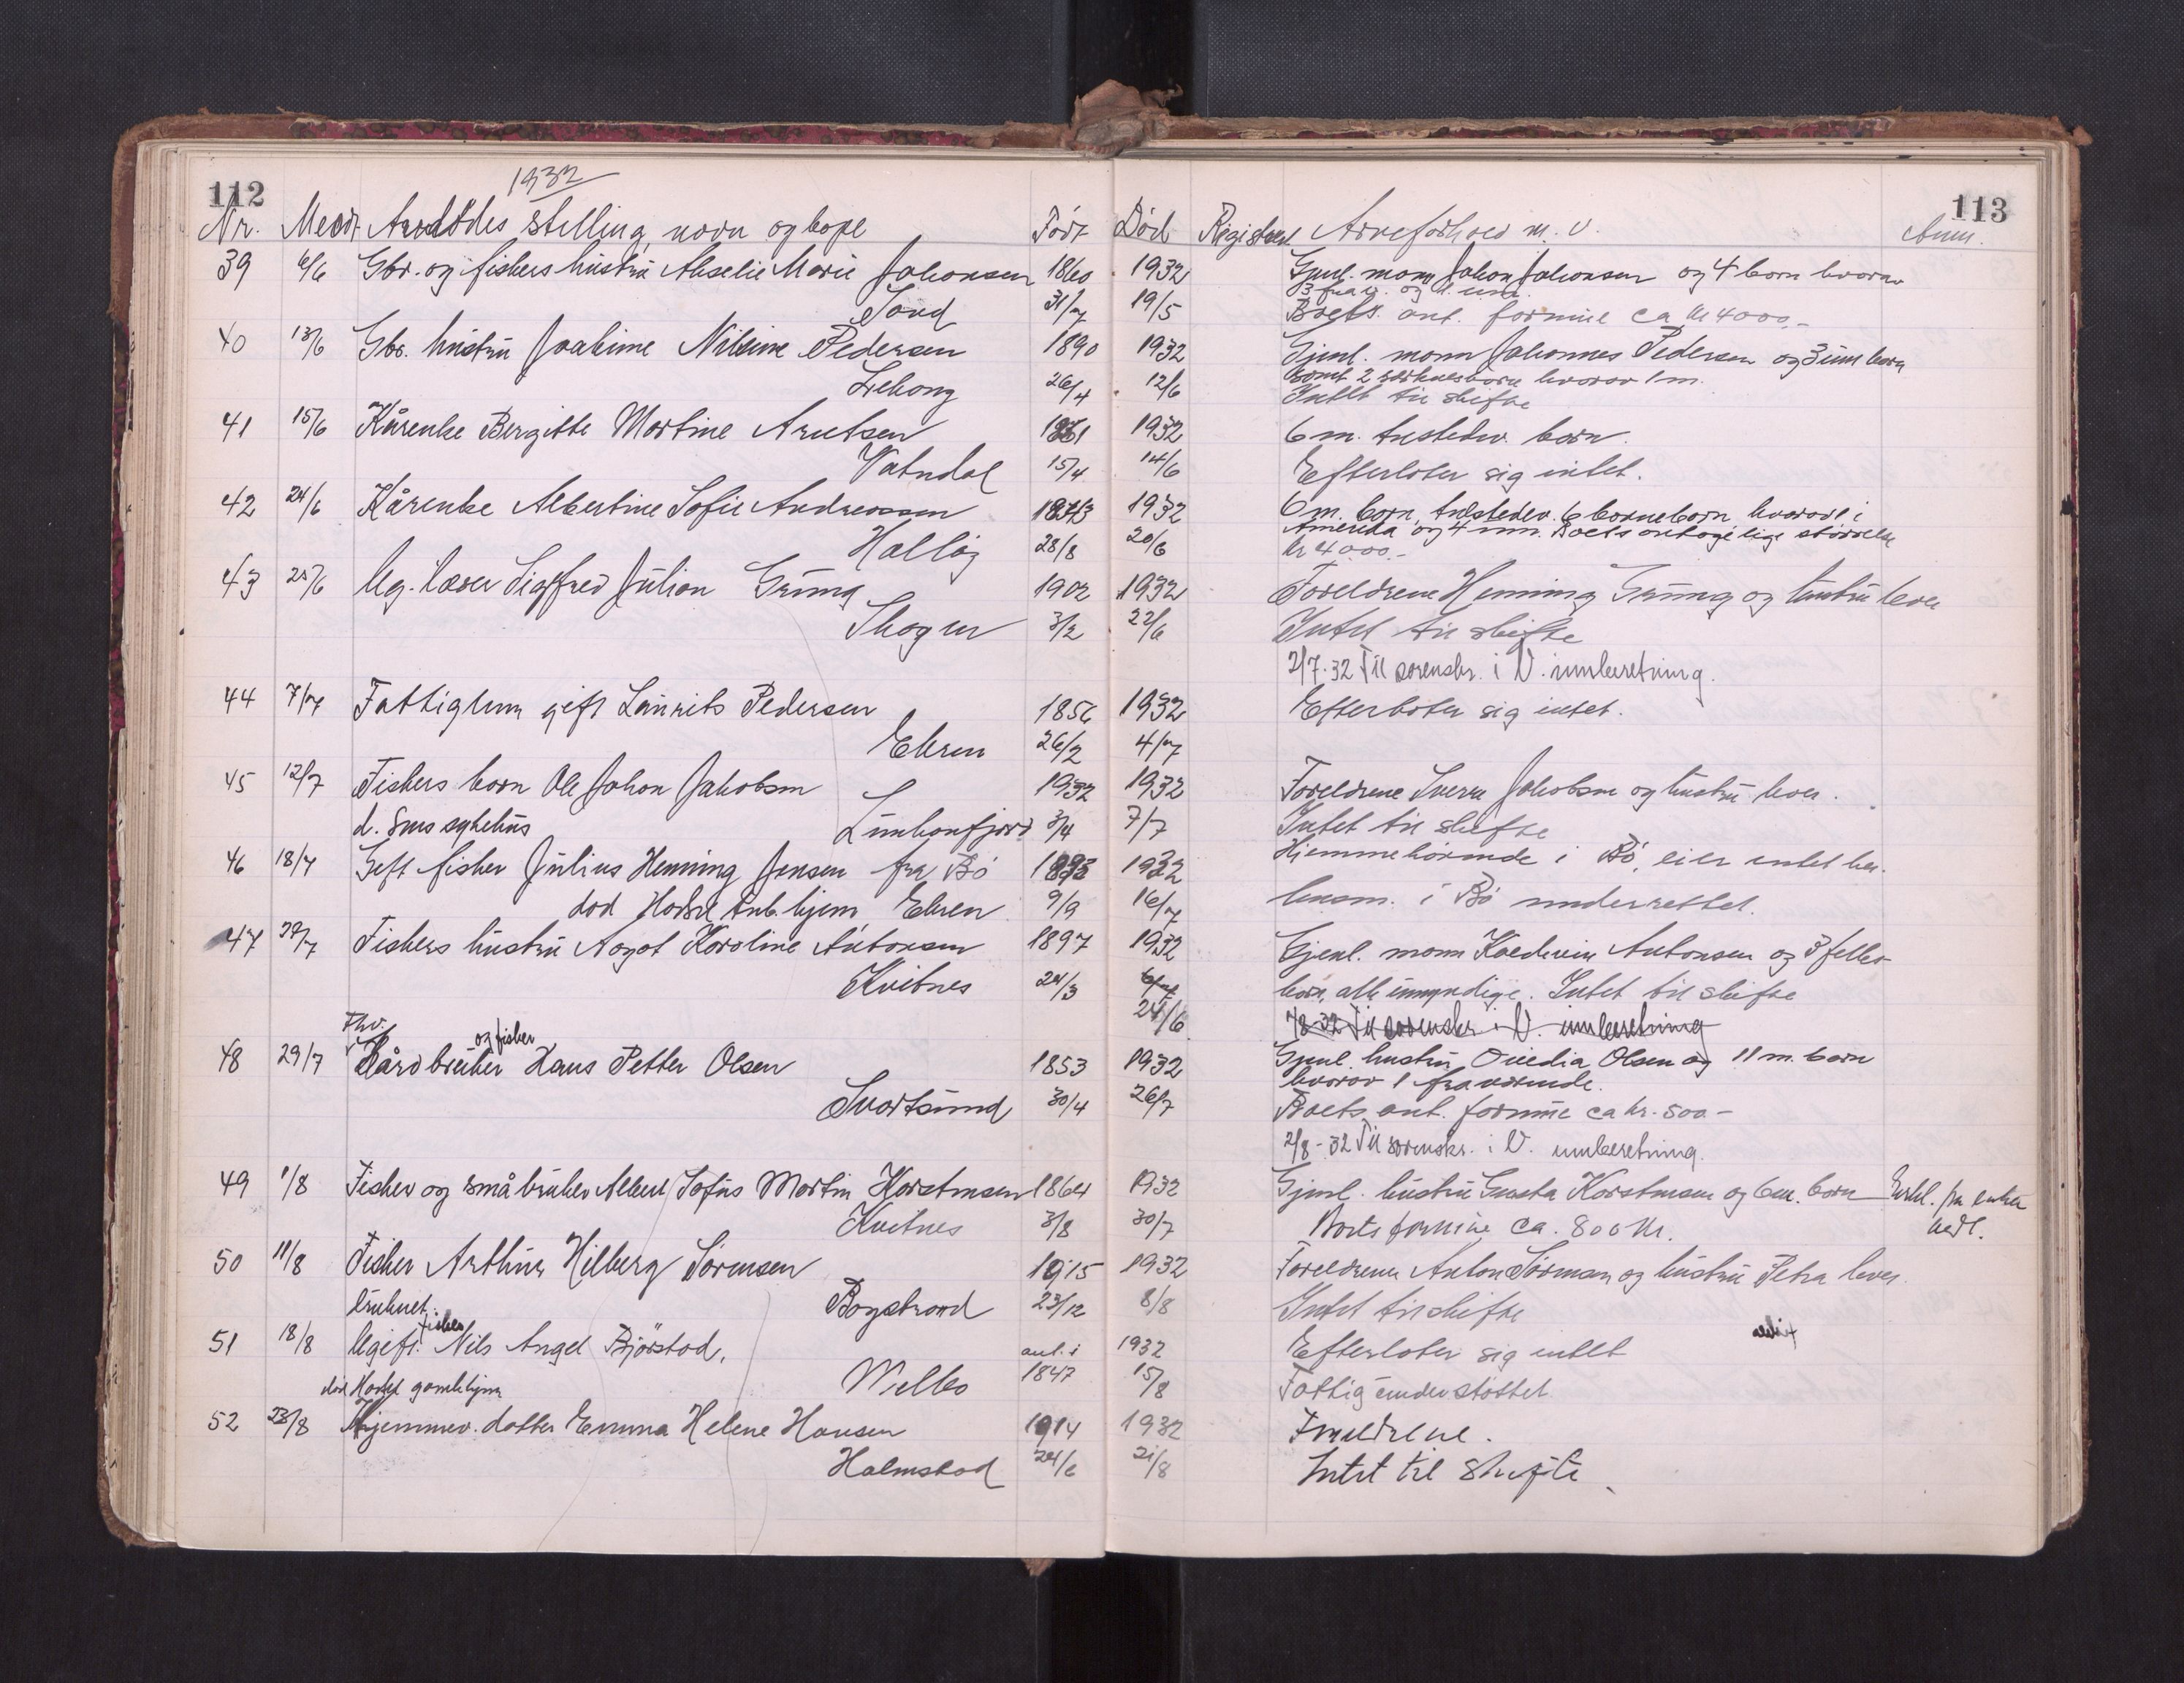 112
1932
113
Nr. Medt. Avdødes stilling, navn og bopel Født Død Registrert Arveforhold m. v. Anm.
39 6/6 Gbr. og fiskers hustru Akselie Marie Johansen 1860 1932 Gjenl. mann Johan Johansen og 4 barn hvorav
3 frav. og 1 um.
Sand 31/7 19/5 Boets ant. formue ca kr 4000,-
40 13/6 Gbr. hustru Joakime Nilsine Pedersen 1890 1932 Gjenl. mann Johannes Pedersen og 3 um barn
samt 2 særkulsbarn hvorav 1 m.
26/4 12/6 Intet til skifte
41 15/6 Kårenke Bergitte Martine Arntsen 1861 1932 6 m. tilstedev. barn.
Vatndal 15/4 14/6 Efterlater sig intet.
42 24/6 Kårenke Albertine Sofie Andreassen 1843 1932 6 m. barn, tilstedev. 6 barnebarn hvorav 1 i
Amerika og 4 um. Boets antagelige størrelse
28/8 20/6 kr 4000.-
43 25/6 Ug. lærer Sigfred Julian Grung 1902 1932 Foreldrene Henning Grung og hustru lever
Skogen 3/2 22/6 Intet til skifte
2/7-32 Til sorenskr. i V. innberetning.
44 7/7 Fattiglem gift Laurits Pedersen 1856 1932 Efterlater sig intet.
Ekren 26/2 4/7
45 12/7 Fiskers barn Ole Johan Jakobsen 1932 1932 Foreldrene Sverre Jakobsen og hustru lever.
d. Smss sykehus Lunkanfjord 3/4 7/7 Intet til skifte
46 18/7 Gift fisker Julius Henning Jensen fra Bø 1893 1932 Hjemmehørende i Bø, eier intet her.
død Hadsel tub. hjem Ekren 9/9 16/7 lensm. i Bø underrettet.
47 22/7 Fiskers hustru Aagot Karoline Antonsen 1897 1932 Gjenl. mann Kaldvin Antonsen og 3 felles
Kvitnes 24/3 barn, alle umyndige. Intet til skifte
24/6 /8-32 Til sorenskr. i V. innberetning
Fhv. og fisker
48 29/7 Gårdbruker Hans Petter Olsen 1853 1932 Gjenl. hustru Ovedia Olsen og 11 m. barn
hvorav 1 fraværende.
Svartsund 30/4 26/7 Boets ant. formue ca kr. 500-
2/8-32 Til sorenskr. i V. innberetning.
49 1/8 Fisker og småbruker Albert Sofus Martin Korstensen 1864 1932 Gjenl. hustru Gusta Korstensen og 6 m. barn Erkl. fra enken
Kvitnes 3/8 30/7 Boets formue ca. 800 kr. vedl.
50 11/8 Fisker Arthur Hilberg Sørensen 1915 1932 Foreldrene Anton Sørensen og hustru Petra lever.
druknet. Bogstrand 23/12 8/8 Intet til skifte
fisker
51 18/8 Ugift Nils Angel Bjørstad, ant. i 1932 Efterlater sig intet
død Hadsel gamlehjem Melbo 1847 15/8 Fattigunderstøttet
52 23/8 Hjemmev. datter Emma Helene Hansen 1914 1932 Foreldrene.
Holmstad 24/6 21/8 Intet til skifte